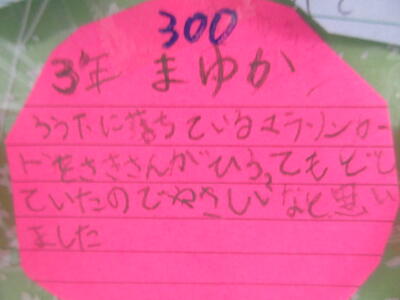 300
3年 まゆか
ろう下に落ちているマラソンカー
ドをさきさんがひろってもどし
ていたのでやさしいなと思い
ました